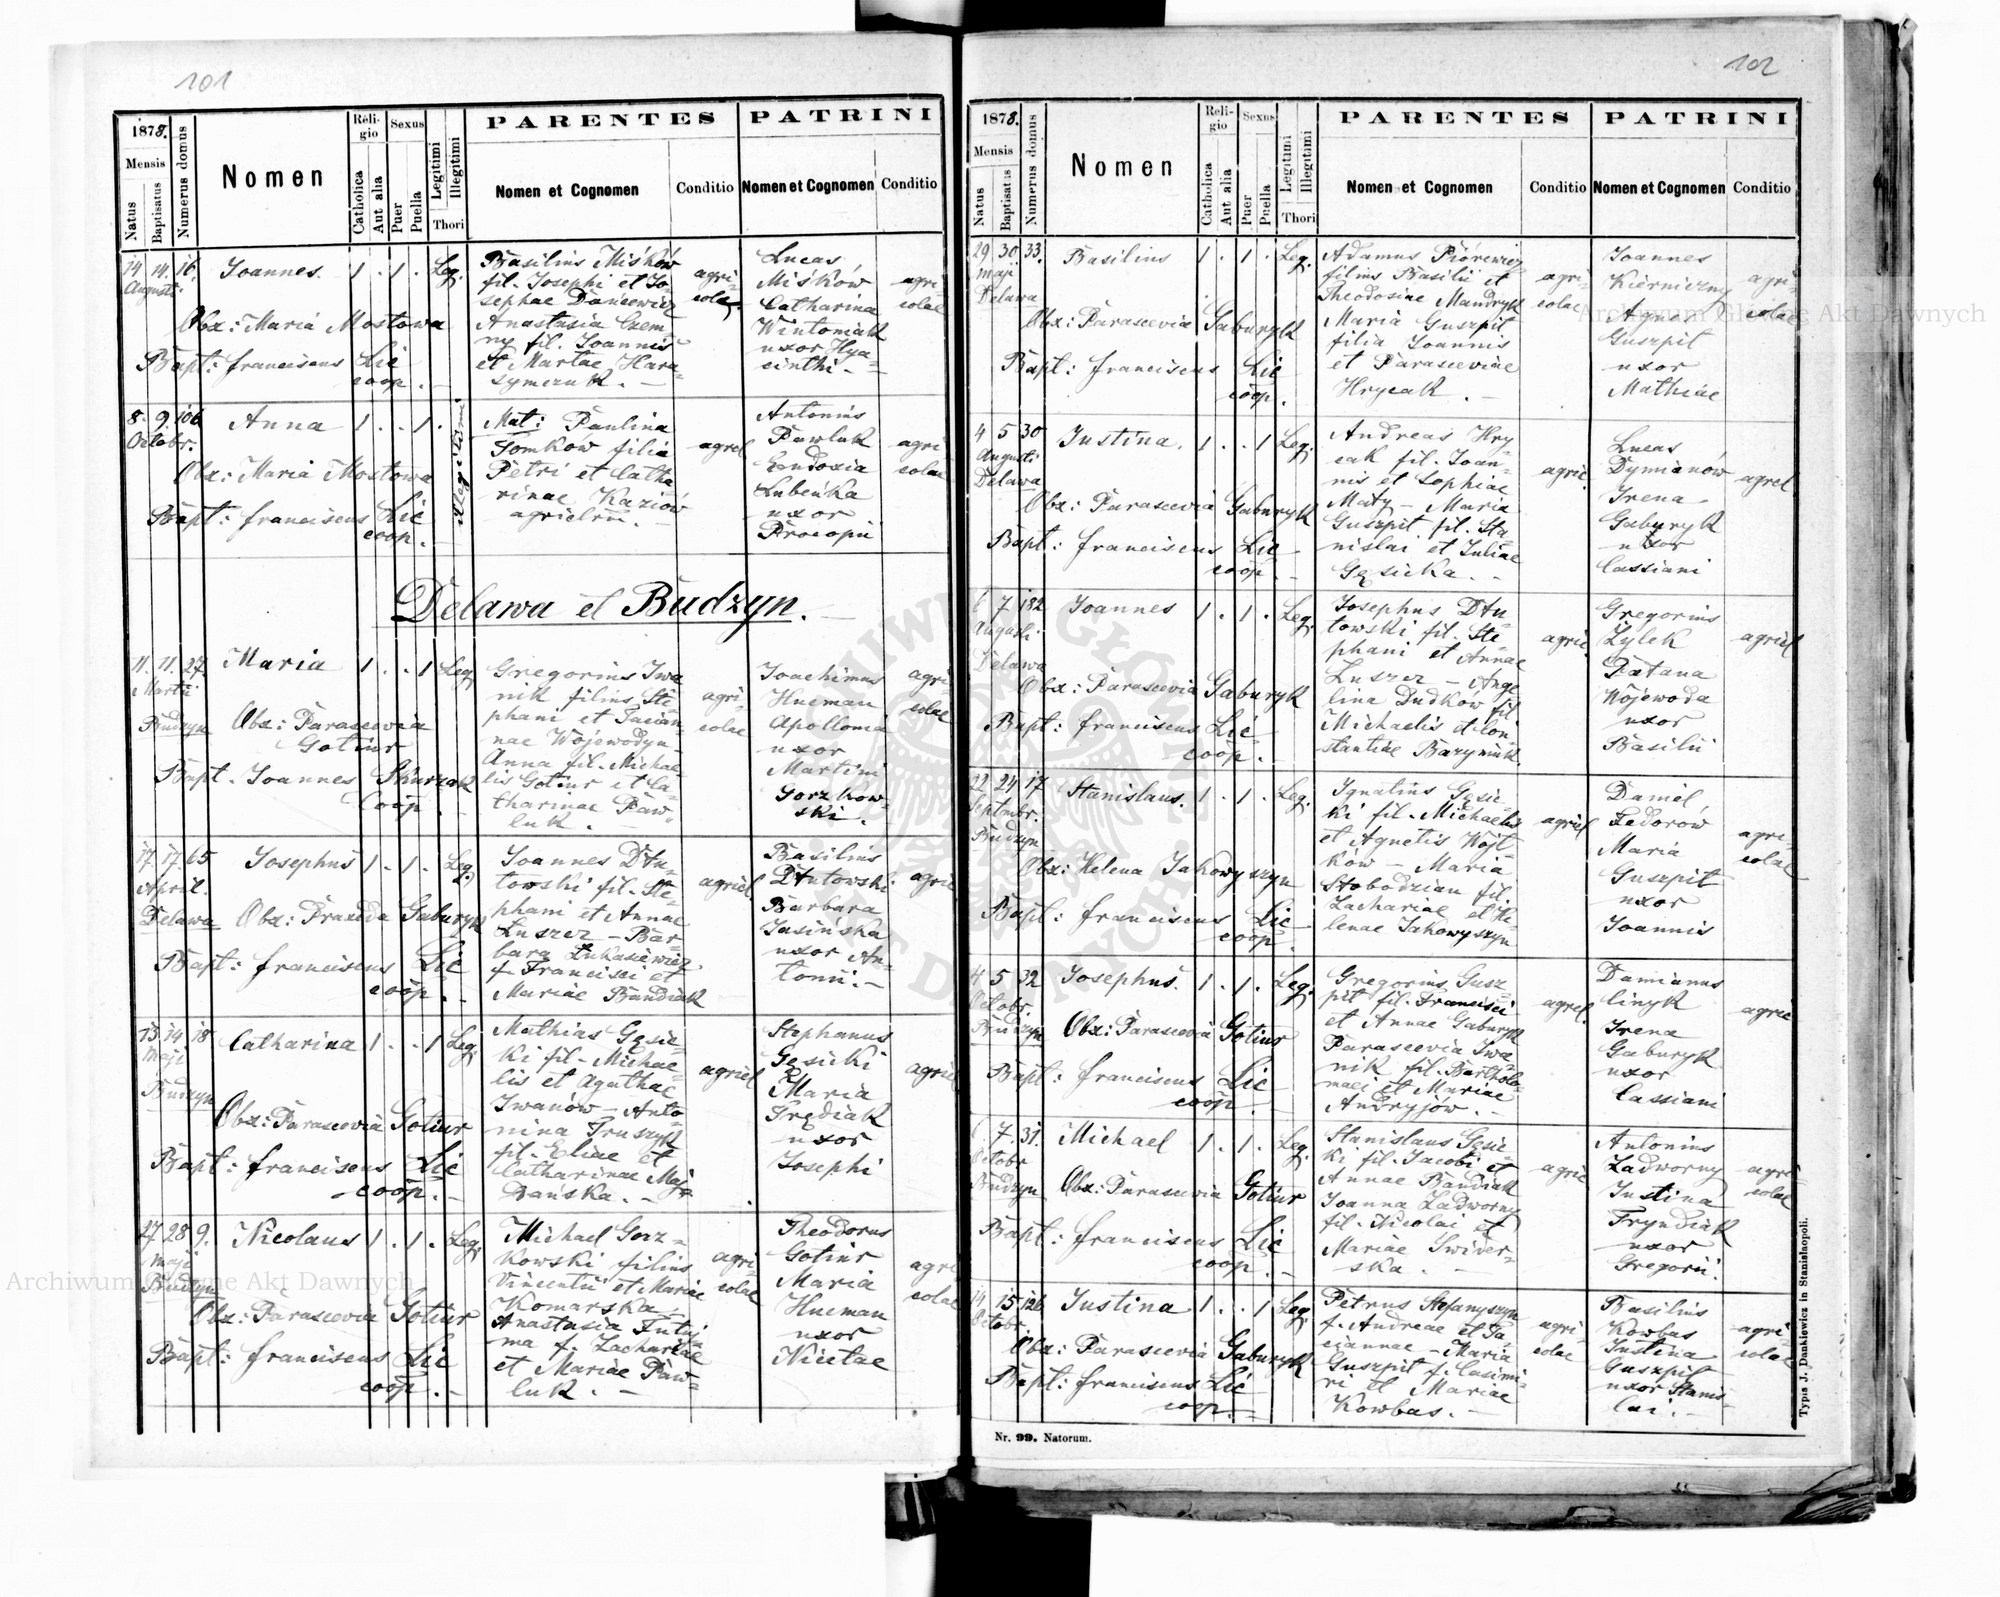 101
1878.
Mensis
Natus
Baptisatus
Numerus domus
Nomen
Religio
Catholica
Aut alia
Sexus
Puer
Puella
Legitimi
Illegitimi
Thori
PARENTES
Nomen et Cognomen
Conditio
PATRINI
Nomen et Cognomen
Conditio
14 14. 16. Joannes. 1 . 1 . Leg.
Augusti
Obx: Maria Mostowa
Bapt: franciscus Lic
coop. -
Basilius Miśków
fil. Josephi et Jo-
sephae Dancewicz
Anastasia Czem
ny fil. Joannis
et Marthae Hara-
symczuk. -
agri-
colae.
Lucas
Miśków
Catharina
Wintoniak
uxor Hya-
cinthi -
agri
colae
8. 9. 106 Anna 1 . . 1 .
Octobr.
illegitimi
Obx: Maria Mostowa
Bapt: franciscus Lic
coop. -
Mat: Paulina
Tomków filia
Petri et Catha
rinae Kaziów
agricolru. -
agrel
Antonius
Pawluk
Eudoxia
Lubeńka
uxor
Procopii
agri
colae
Delawa et Budzyn. -
11. 11. 27 Maria 1 . . 1 Leg.
Martii
Budzyn
Obx: Parascevia
Gotiur
Bapt. Joannes Skurzak
Coop. -
Gregorius Iwa
nik filius Ste-
phani et Tacian-
nae Wojewodyn-
Anna fil. Michae-
lis Gotiur et Ca-
tharinae Paw-
luk. -
agri-
colae
Joachimus
Hucman
Apollonia
uxor
Martini
Gorzkow-
ski. -
agri-
colae
17. 17. 65 Josephus 1 . 1 . Leg.
April.
Delawa
Obx: Praxeda Gaburyk
Bapt: franciscus Lic
coop. -
Joannes Dłu-
towski fil. Ste-
phani et Annae
Łuszcz - Bar-
bara Łukasiewicz
f. Francisci et
Mariae Bandiak
agricl.
Basilius
Dłutowski
Barbara
Jasińska
uxor An-
tonii. -
agric
13. 14 18 Catharina 1 . . 1 Leg.
Maji
Budzyn
Obx: Parascevia Gotiur
Bapt: franciscus Lic
coop. -
Mathias Gęsic-
ki fil. Michae-
lis et Agathae
Iwanów - Anto-
nina Truszyk
fil. Eliae et
Catharinae Maj-
dańska. -
agricl
Stephanus
Gęsicki
Maria
Frędiak
uxor
Josephi
agricl
27 28 9. Nicolaus 1 . 1 . Leg.
Maji
Budzyn
Obx: Parascevia Gotiur
Bapt: franciscus Lic
coop. -
Michael Gorz-
kowski filius
Vincentii et Mariae
Komarska
Anastasia Futuj-
ma f. Zachariae
et Mariae Paw-
luk. -
agri
colae
Theodorus
Gotiur
Maria
Hucman
uxor
Nicetae
agri
colae
102
1878.
Mensis
Natus
Baptisatus
Numerus domus
Nomen
Religio
Catholica
Aut alia
Sexus
Puer
Puella
Legitimi
Illegitimi
Thori
PARENTES
Nomen et Cognomen
Conditio
PATRINI
Nomen et Cognomen
Conditio
29. 30. 33. Basilius 1 . 1 . Leg.
Maji
Delawa
Obx: Parascevia Gaburyk
Bapt: franciscus Lic
coop. -
Adamus Piórewicz
filius Basilii et
Theodosiae Mandryk
Maria Guszpit
filia Joannis
et Parasceviae
Hrycak. -
agri
colae
Joannes
Kierniczny
Agnes
Guszpit
uxor
Mathiae
agri-
colae
4 5 30 Justina. 1 . . 1 Leg.
Augusti
Delawa
Obx: Parascevia Gaburyk
Bapt: franciscus Lic
coop. -
Andreas Hry-
cak fil. Joan-
nis et Sophiae
Maty - Maria
Guszpit fil. Sta-
nislai et Juliae
Gęsicka. -
agric.
Lucas
Dymianów
Irena
Gaburyk
uxor
Cassiani
agrel
6 7 182 Joannes 1 . 1 . Leg.
Augusti
Delawa
Obx: Parascevia Gaburyk
Bapt: franciscus Lic
coop. -
Josephus Dłu-
towski fil. Ste-
phani et Annae
Łuszcz - Ange
lina Dudków fil.
Michaelis et Con-
stantiae Bazyniuk
agric.
Gregorius
Żylek
Tatana
Wojewoda
uxor
Basilii
agricl
22. 24 17 Stanislaus. 1 . 1 . Leg.
Septmbr.
Budzyn
Obx: Helena Jakowyszyn
Bapt: franciscus Lic
coop. -
Ignatius Gęsic-
ki fil. Michaelis
et Agnetis Wojt-
ków - Maria
Słobodzian fil.
Zachariae et He-
lenae Jakowyszyn
agricl
Daniel
Fedorów
Maria
Guszpit
uxor
Joannis
agri-
colae
4 5 32 Josephus. 1 . 1 . Leg.
Octobr.
Budzyn
Obx: Parascevia Gotiur
Bapt: franciscus Lic
coop. -
Gregorius Gusz-
pit fil. Francisci
et Annae Gaburyk
Parascevia Iwa-
nik fil. Bartholo-
maei et Mariae
Andryjów. -
agricl.
Damianus
Cinyk
Irena
Gaburyk
uxor
Cassiani
agric
6. 7. 31. Michael 1 . 1 . Leg.
Octobr
Budzyn
Obx: Parascevia Gotiur
Bapt: franciscus Lic
coop. -
Stanislaus Gęsic-
ki fil. Jacobi et
Annae Bandiak
Joanna Zadworny
fil. Nicolai et
Mariae Swider-
ska. -
agric
Antonius
Zadworny
Justina
Fryndiak
uxor
Gregorii.
agri
colae
14 15. 126 Justina 1 . . 1 Leg.
Octobr.
Obx: Parascevia Gaburyk
Bapt: franciscus Lic
coop. -
Petrus Stefanyszyn
f. Andreae et Ta
ciannae - Maria
Guszpit f. Casimi-
ri et Mariae
Kowbas. -
agri-
colae
Basilius
Kowbas
Justina
Guszpit
uxor Stanis-
lai. -
agri-
colae
Nr. 99. Natorum.
Typis J. Dankiewicz in Stanislaopoli.
Archiwum Główne Akt Dawnych
Archiwum Główne Akt Dawnych